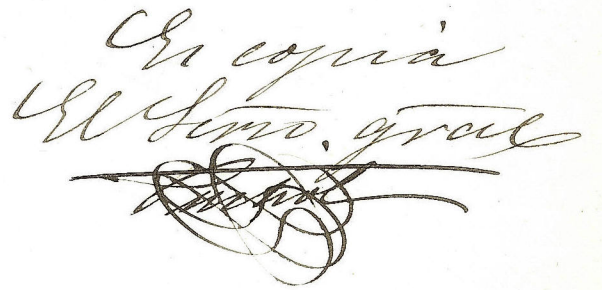 Es copia
El Srio. gral